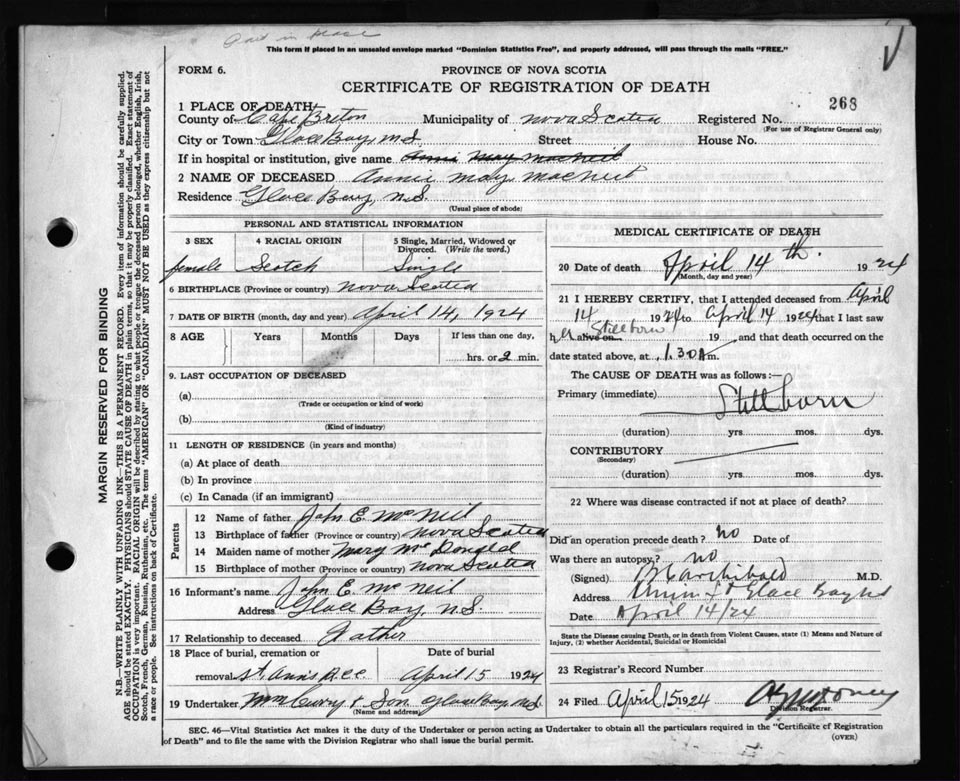 Paid in place
This form if placed in an unsealed envelope marked "Dominion Statistics Free", and properly addressed, will pass through the mails "FREE."
FORM 6.
PROVINCE OF NOVA SCOTIA
CERTIFICATE OF REGISTRATION OF DEATH
268
1 PLACE OF DEATH
County of Cape Breton Municipality of Nova Scotia Registered No.
(For use of Registrar General only)
City or Town Glace Bay, N.S. Street House No.
If in hospital or institution, give name Annie May MacNeil
2 NAME OF DECEASED Annie May MacNeil
Residence Glace Bay, N.S.
(Usual place of abode)
PERSONAL AND STATISTICAL INFORMATION
3 SEX 4 RACIAL ORIGIN 5 Single, Married, Widowed or Divorced. (Write the word.)
female Scotch Single
6 BIRTHPLACE (Province or country) Nova Scotia
7 DATE OF BIRTH (month, day and year) April 14, 1924
8 AGE Years Months Days If less than one day,
hrs. or 2 min.
9. LAST OCCUPATION OF DECEASED
(a)
(Trade or occupation or kind of work)
(b)
(Kind of industry)
11 LENGTH OF RESIDENCE (in years and months)
(a) At place of death
(b) In province
(c) In Canada (if an immigrant)
Parents
12 Name of father John E. McNeil
13 Birthplace of father (Province or country) Nova Scotia
14 Maiden name of mother Mary McDonald
15 Birthplace of mother (Province or country) Nova Scotia
16 Informant's name John E. McNeil
Address Glace Bay, N.S.
17 Relationship to deceased Father
18 Place of burial, cremation or Date of burial
removal St. Anns April 15 1924
19 Undertaker Wm Curry & Son Glace Bay, N.S.
(Name and address)
MEDICAL CERTIFICATE OF DEATH
20 Date of death April 14th. 1924
(Month, day and year)
21 I HEREBY CERTIFY, that I attended deceased from April
14 1924 to April 14 1924 that I last saw
h er alive on Stillborn 19 , and that death occurred on the
date stated above, at 1.30 A m.
The CAUSE OF DEATH was as follows :—
Primary (immediate) Stillborn
(duration) yrs. mos. dys.
CONTRIBUTORY
(Secondary)
(duration) yrs. mos. dys.
22 Where was disease contracted if not at place of death?
Did an operation precede death? No Date of
Was there an autopsy? no
(Signed) Archibald M.D.
Address Glace Bay NS
Date April 14/24
State the Disease causing Death, or in death from Violent Causes, state (1) Means and Nature of Injury, (2) whether Accidental, Suicidal or Homicidal
23 Registrar's Record Number
24 Filed April 15 1924
Division Registrar.
SEC. 46—Vital Statistics Act makes it the duty of the Undertaker or person acting as Undertaker to obtain all the particulars required in the "Certificate of Registration
of Death" and to file the same with the Division Registrar who shall issue the burial permit.
(OVER)
MARGIN RESERVED FOR BINDING
N.B.—WRITE PLAINLY WITH UNFADING INK—THIS IS A PERMANENT RECORD. Every item of information should be carefully supplied.
AGE should be stated EXACTLY. PHYSICIANS should STATE CAUSE OF DEATH in plain terms, so that it may be properly classified. Exact statement of
OCCUPATION is very important. RACIAL ORIGIN will be described by stating to what people or tongue the deceased person belonged, whether English, Irish,
Scotch, French, German, Russian, Ruthenian, etc. The terms "AMERICAN" or "CANADIAN" MUST NOT BE USED as they express citizenship but not
a race or people. See instructions on back of Certificate.